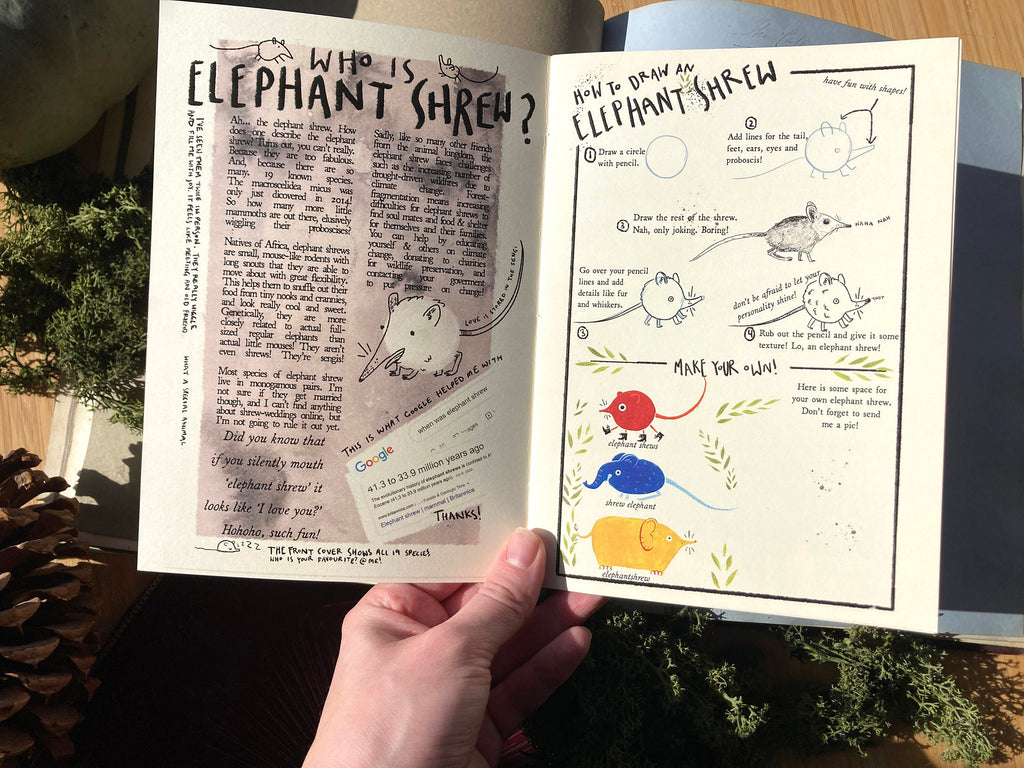 WHO IS
ELEPHANT SHREW?
I'VE SEEN THEM TWICE IN PERSON. THEY REALLY WIGGLE
AND FILL ME WITH JOY. IT FEELS LIKE MEETING AN OLD FRIEND.
WHAT A SPECIAL ANIMAL
Ah... the elephant shrew. How
does one describe the elephant
shrew? Turns out, you can't really.
Because they are too fabulous.
And, because there are so
many. 19 known species.
The macroselidea micus was
only just dicovered in 2014!
So how many more little
mammoths are out there, elusively
wiggling their proboscises?
Natives of Africa, elephant shrews
are small, mouse-like rodents with
long snouts that they are able to
move about with great flexibility.
This helps them to snuffle out their
food from tiny nooks and crannies,
and look really cool and sweet.
Genetically, they are more
closely related to actual full-
sized regular elephants than
actual little mouses! They aren't
even shrews! They're sengis!
Most species of elephant shrew
live in monogamous pairs. I'm
not sure if they get married
though, and I can't find anything
about shrew-weddings online, but
I'm not going to rule it out yet.
Did you know that
if you silently mouth
'elephant shrew' it
looks like 'I love you?'
Hohoho, such fun!
Sadly, like so many other friends
from the animal kingdom, the
elephant shrew faces challenges
such as the increasing number of
drought-driven wildfires due to
climate change. Forest-
fragmentation means increasing
difficulties for elephant shrews to
find soul mates and food & shelter
for themselves and their families.
You can help by educating
yourself & others on climate
change, donating to charities
for wildlife preservation, and
contacting your goverment
to put pressure on change!
LOVE IS SHARED IN THE SENGI
THIS IS WHAT GOOGLE HELPED ME WITH
when was elephant shrew
Google
41.3 to 33.9 million years ago
The evolutionary history of elephant shrews is confined to A
Eocene (41.3 to 33.9 million years ago)
www.britannica.com
Elephant shrew | mammal | Britannica
THANKS!
zzz
THE FRONT COVER SHOWS ALL 19 SPECIES
WHO IS YOUR FAVOURITE? @ME!
HOW TO DRAW AN
ELEPHANT SHREW
have fun with shapes!
1 Draw a circle
with pencil.
2
Add lines for the tail,
feet, ears, eyes and
proboscis!
3 Draw the rest of the shrew.
Nah, only joking. Boring!
NANA NAH
Go over your pencil
lines and add
details like fur
and whiskers.
3
don't be afraid to let your
personality shine!
TOOT
4 Rub out the pencil and give it some
texture! Lo, an elephant shrew!
MAKE YOUR OWN!
Here is some space for
your own elephant shrew.
Don't forget to send
me a pic!
elephant shews
shrew elephant
elephantshrew